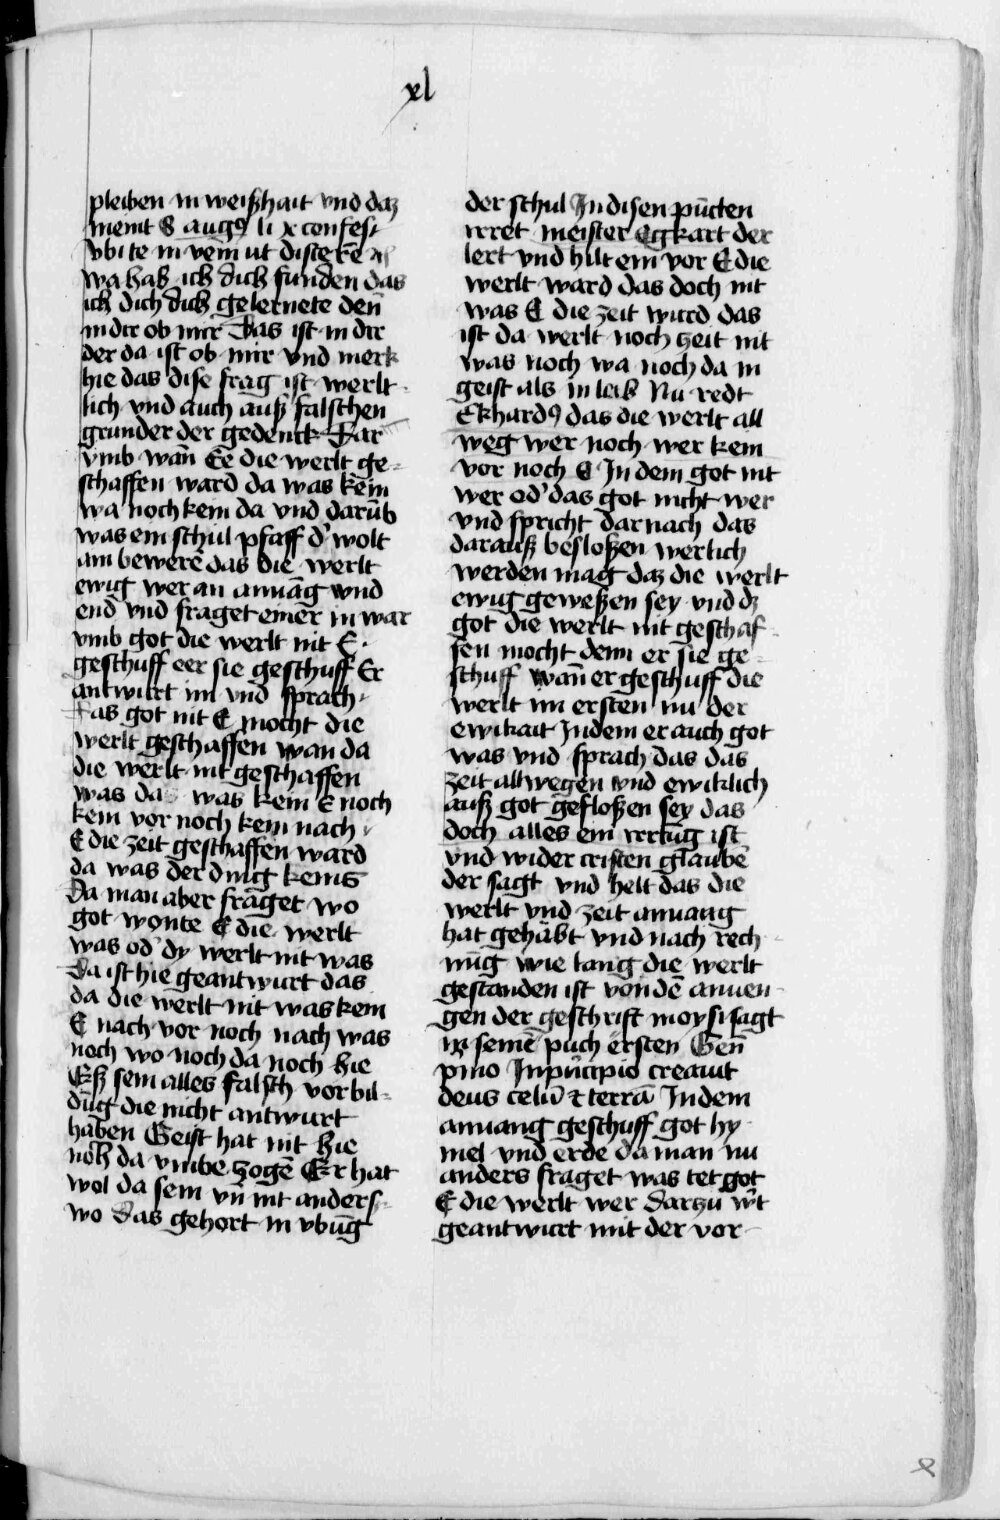 xl
pleiben in weißhait vnd daz
meint S augꝰ li x confes
vbi te in veni ut discerē
wa hab ich dich funden das
ich dich dich gelernete deñ
in dir ob mir Das ist in dir
der da ist ob mir vnd merk
hie das dise frag ist werlt
lich vnd auch auß falschen
grunder der gedenck Dar
vmb wañ Ee die werlt ge
schaffen ward da was kein
wa noch kein da vnd darūb
was ein schul pfaff d' wolt
am bewerē das die werlt
ewig wer an anuāg vnd
end vnd fraget einer in war
vmb got die werlt nit E
geschuff eer sie geschuff Er
antwurt im vnd sprach
Das got nit E mocht die
werlt geschaffen wan da
die werlt nit geschaffen
was da was kein E noch
kein vor noch kein nach
E die zeit geschaffen ward
da was der ding keins
Da man aber fraget wo
got wonte E die werlt
was od' dy werlt nit was
Da ist hie geantwurt das
da die werlt nit was kein
E nach vor noch nach was
noch wo noch da noch hie
Eß sein alles falsch vorbil
dūg die nicht antwurt
haben Geist hat nit hie
noch da vmbe zogē Er hat
wol da sein vñ nit anders
wo Das gehort in vbūg
der schul In disen pūcten
irret meister Egkart der
lert vnd hilt ein vor E die
werlt ward das doch nit
was E die zeit wurd das
ist da werlt noch zeit nit
was noch wa noch da in
geist als in leib Nu redt
Ekhardꝰ das die werlt all
weg wer noch wer kein
vor noch E In dem got nit
wer od' das got nicht wer
vnd spricht dar nach das
darauß besloßen werlich
werden mag daz die werlt
ewig geweßen sey vnd dz
got die werlt nit geschaf
fen mocht denn er sie ge
schuff wañ er geschuff die
werlt im ersten nu der
ewikait Indem er auch got
was vnd sprach das das
zeit allwegen vnd ewiklich
auß got gefloßen sey das
doch alles ein irrūg ist
vnd wider cristen glaubē
der sagt vnd helt das die
werlt vnd zeit anuang
hat gehabt vnd nach rech
nūg wie lang die werlt
gestanden ist von dē anuen
gen der geschrift moysi sagt
in seinē puch ersten Geñ
pmo In principio creauit
deus celū ⁊ terrā Indem
anuang geschuff got hy
mel vnd erde da man nu
anders fraget was tet got
E die werlt wer darzu
geantwurt mit der vor